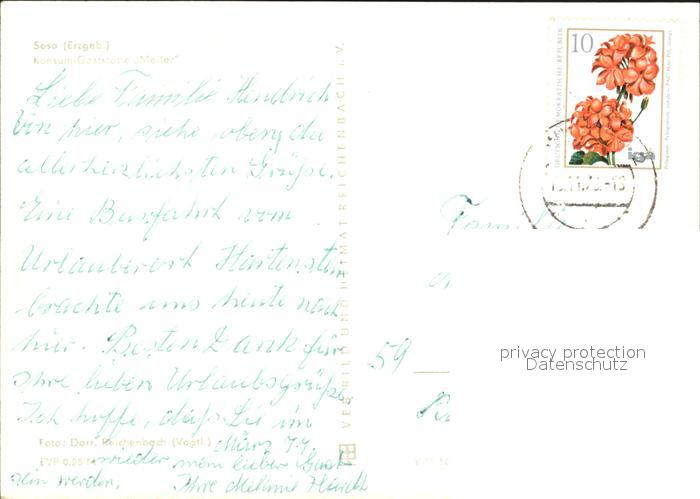 Sosa (Erzgeb.)
Konsum-Gaststätte „Meiler"
Liebe Familie Hendrich
Von hier, siehe oben, die
allerherzlichsten Grüße.
Eine Busfahrt vom
Urlauberort Hartenstein
brachte uns heute nach
hier. Besten Dank für
Ihre lieben Urlaubsgrüße.
Ich hoffe, daß Sie im
März 77
wieder mein lieber Gast
sein werden.
Ihre Melanie
Foto: Darr, Reichenbach (Vogtl.)
EVP 0,25 M
VEB BILD UND HEIMAT REICHENBACH i. V.
10
DEUTSCHE DEMOKRATISCHE REPUBLIK
iga
Familie
59
privacy protection
Datenschutz